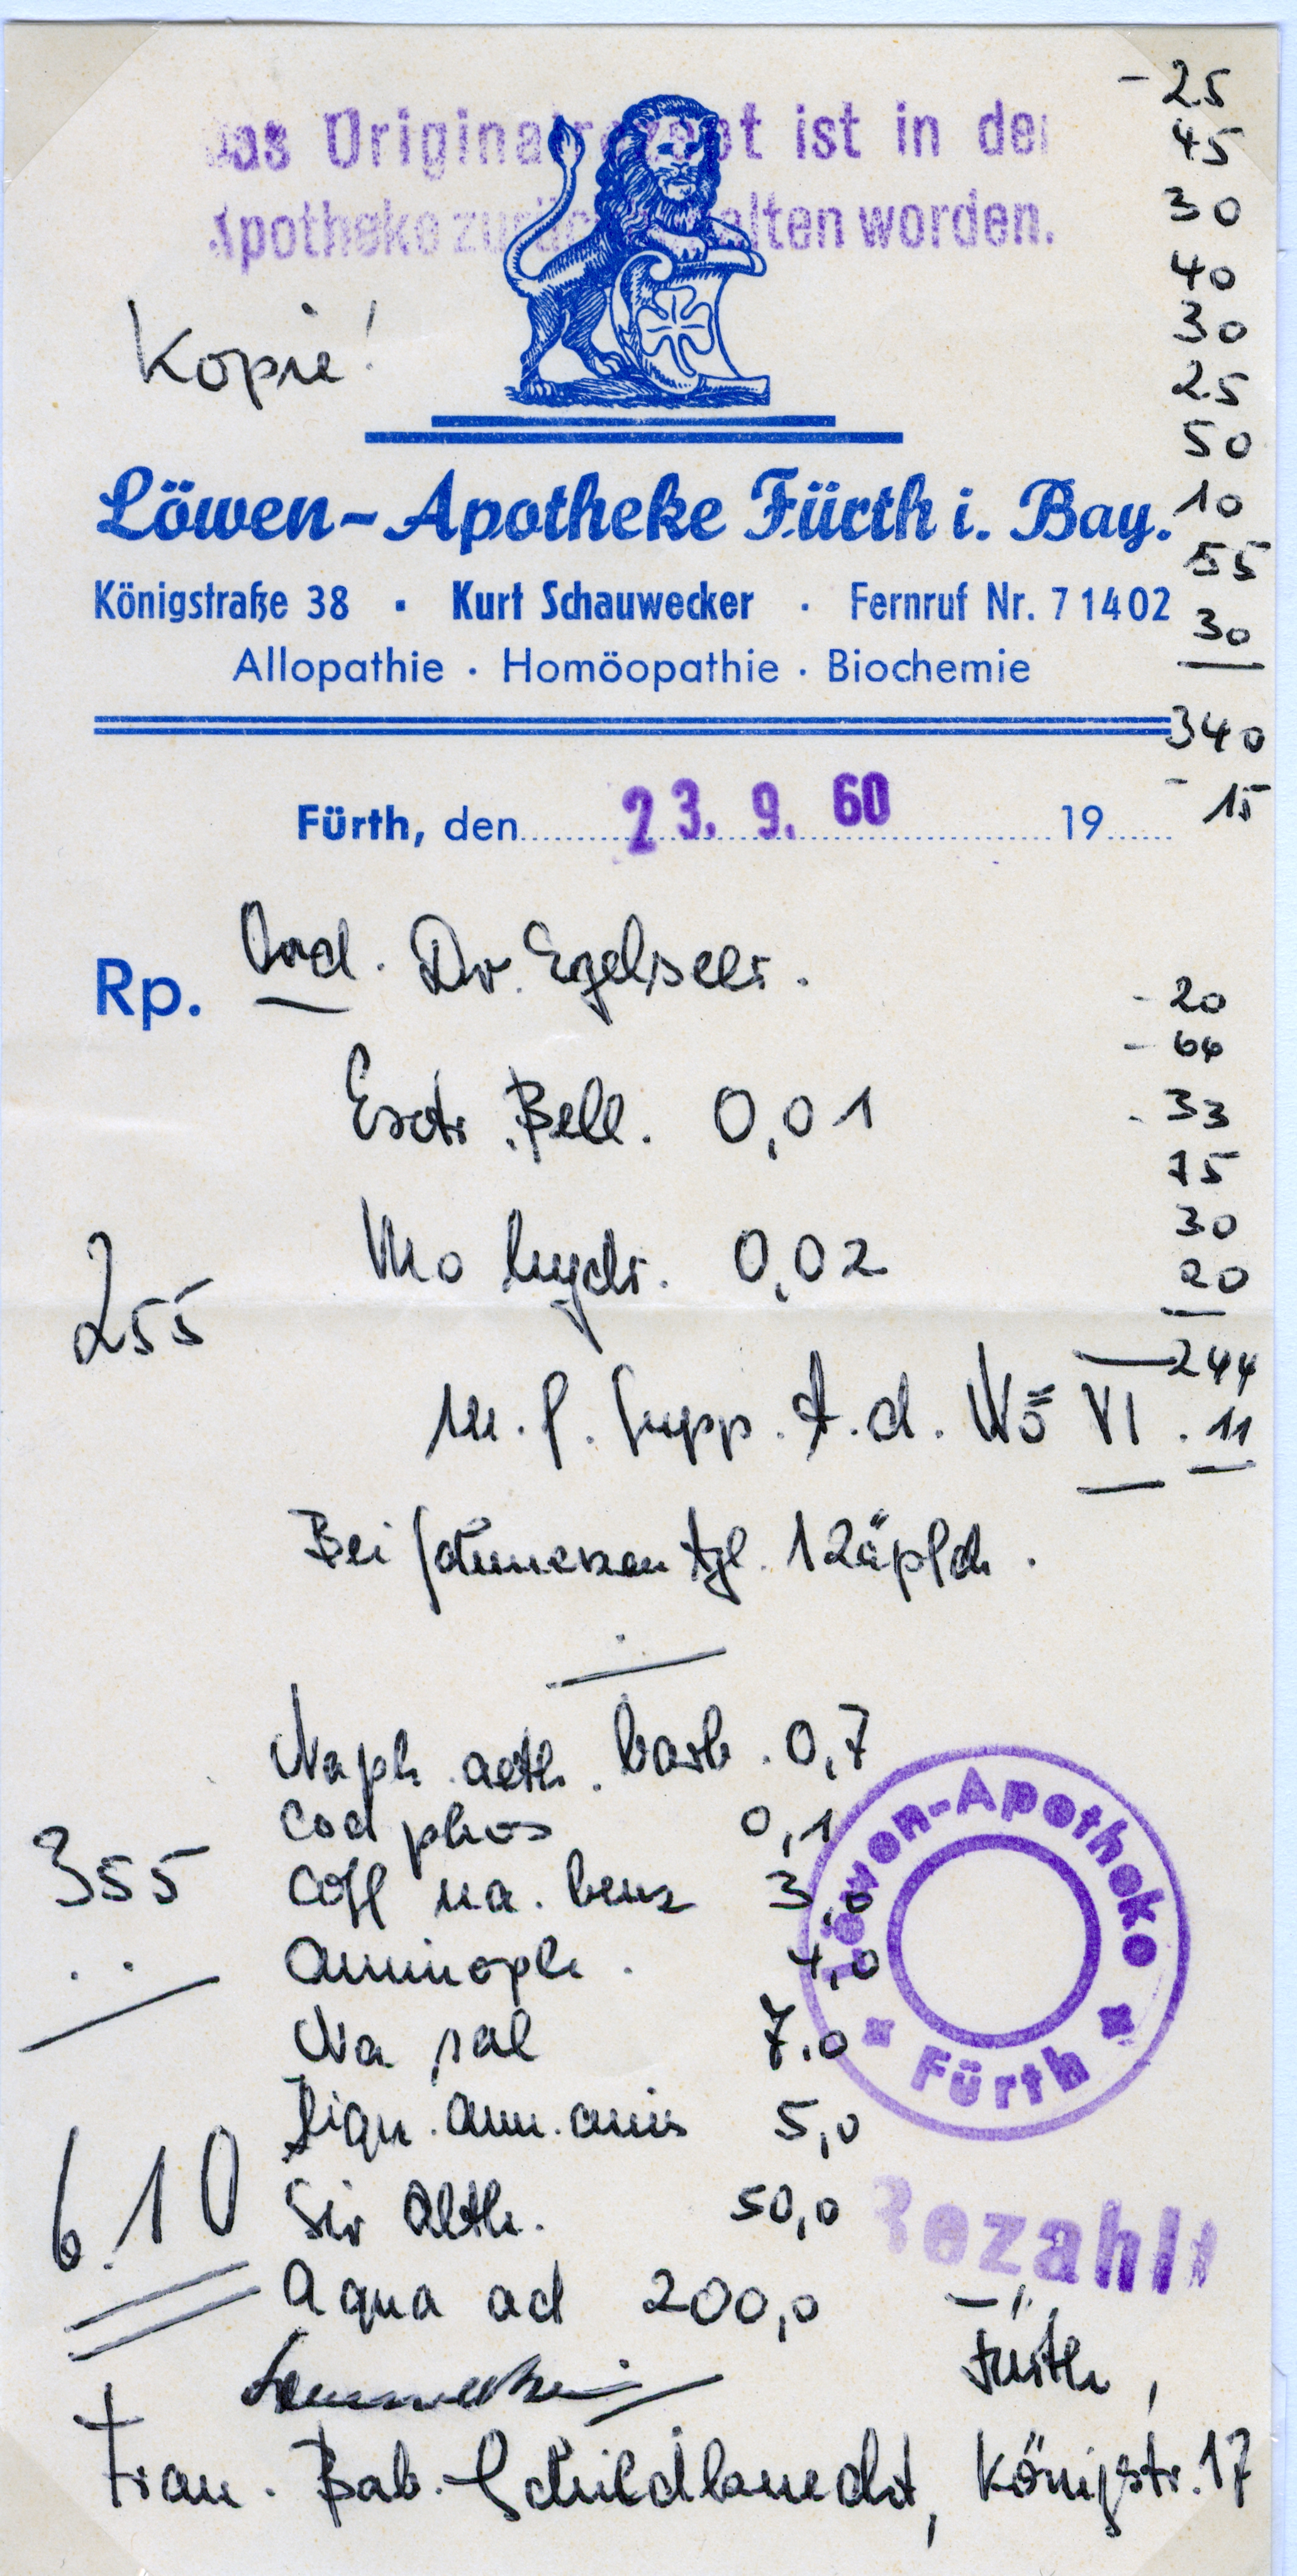 Das Originalrezept ist in der
Apotheke zurückbehalten worden.
Kopie!
Löwen-Apotheke Fürth i. Bay.
Königstraße 38 · Kurt Schauwecker · Fernruf Nr. 7 14 02
Allopathie · Homöopathie · Biochemie
- 25
45
30
40
30
25
50
10
55
30
340
- 15
Fürth, den 23. 9. 60 19
Rp. Ord. Dr. Egelseer.
Extr. Bell. 0,01
Mo hydr. 0,02
M. f. Supp. t. d. No VI.
Bei Schmerzen tgl. 1 Zäpfch.
- 20
- 66
- 33
75
30
20
244
11
255
Naph. aeth. barb. 0,7
Cod phos 0,1
Coff na. benz 3,0
Aminoph. 4,0
Na sal 7.0
Liqu. amm. anis 5,0
Sir Alth. 50,0
Aqua ad 200,0
355
6.10
Löwen-Apotheke
Fürth
Bezahlt
Fürth,
Frau. Bab. Schildknecht, Königstr. 17